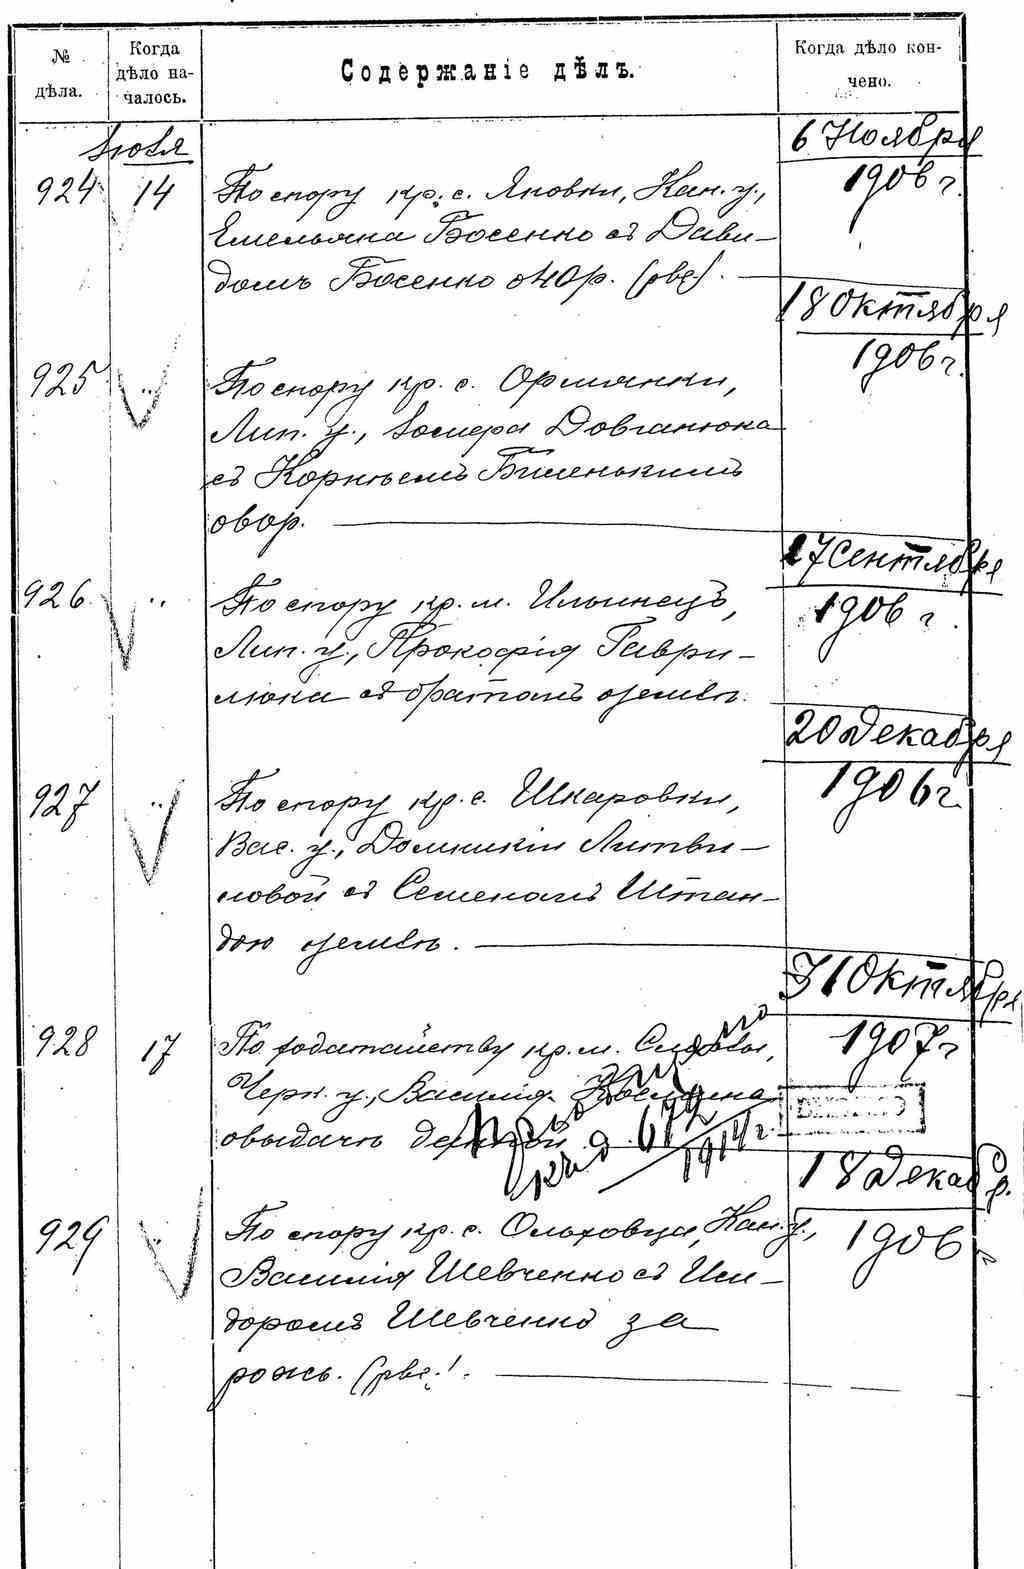 № дѣла.
Когда дѣло началось.
Содержаніе дѣлъ.
Когда дѣло кончено.
Іюля
6 Ноября
1906 г.
924 14 По спору кр. с. Яновки, Кан. у.,
Емельяна Босенко съ Дави-
домъ Босенко о 40 р. (рве).
18 Октября
1906 г.
925 " По спору кр. с. Ормянки,
Лип. у., Довганюка
съ Корнѣемъ Биленькимъ
о вор.
27 Сентября
1906 г.
926 " По спору кр. м. Ильинецъ,
Лип. у., Прокофія Гаври-
люка съ братомъ о землѣ.
20 Декабря
1906 г.
927 " По спору кр. с. Шкаровки,
Вас. у., Домникіи Литви-
новой съ Семеномъ Штан-
дою о землѣ.
31 Октября
1907 г.
928 17 По ходатайству кр. м.
Черк. у., Василія
о выдачѣ
д. 672
1914 г.
18 Декабр.
1906 г.
929 " По спору кр. с. Ольховца, Кан. у.,
Василія Шевченко съ Иси-
доромъ Шевченко за
рожь. (рве).